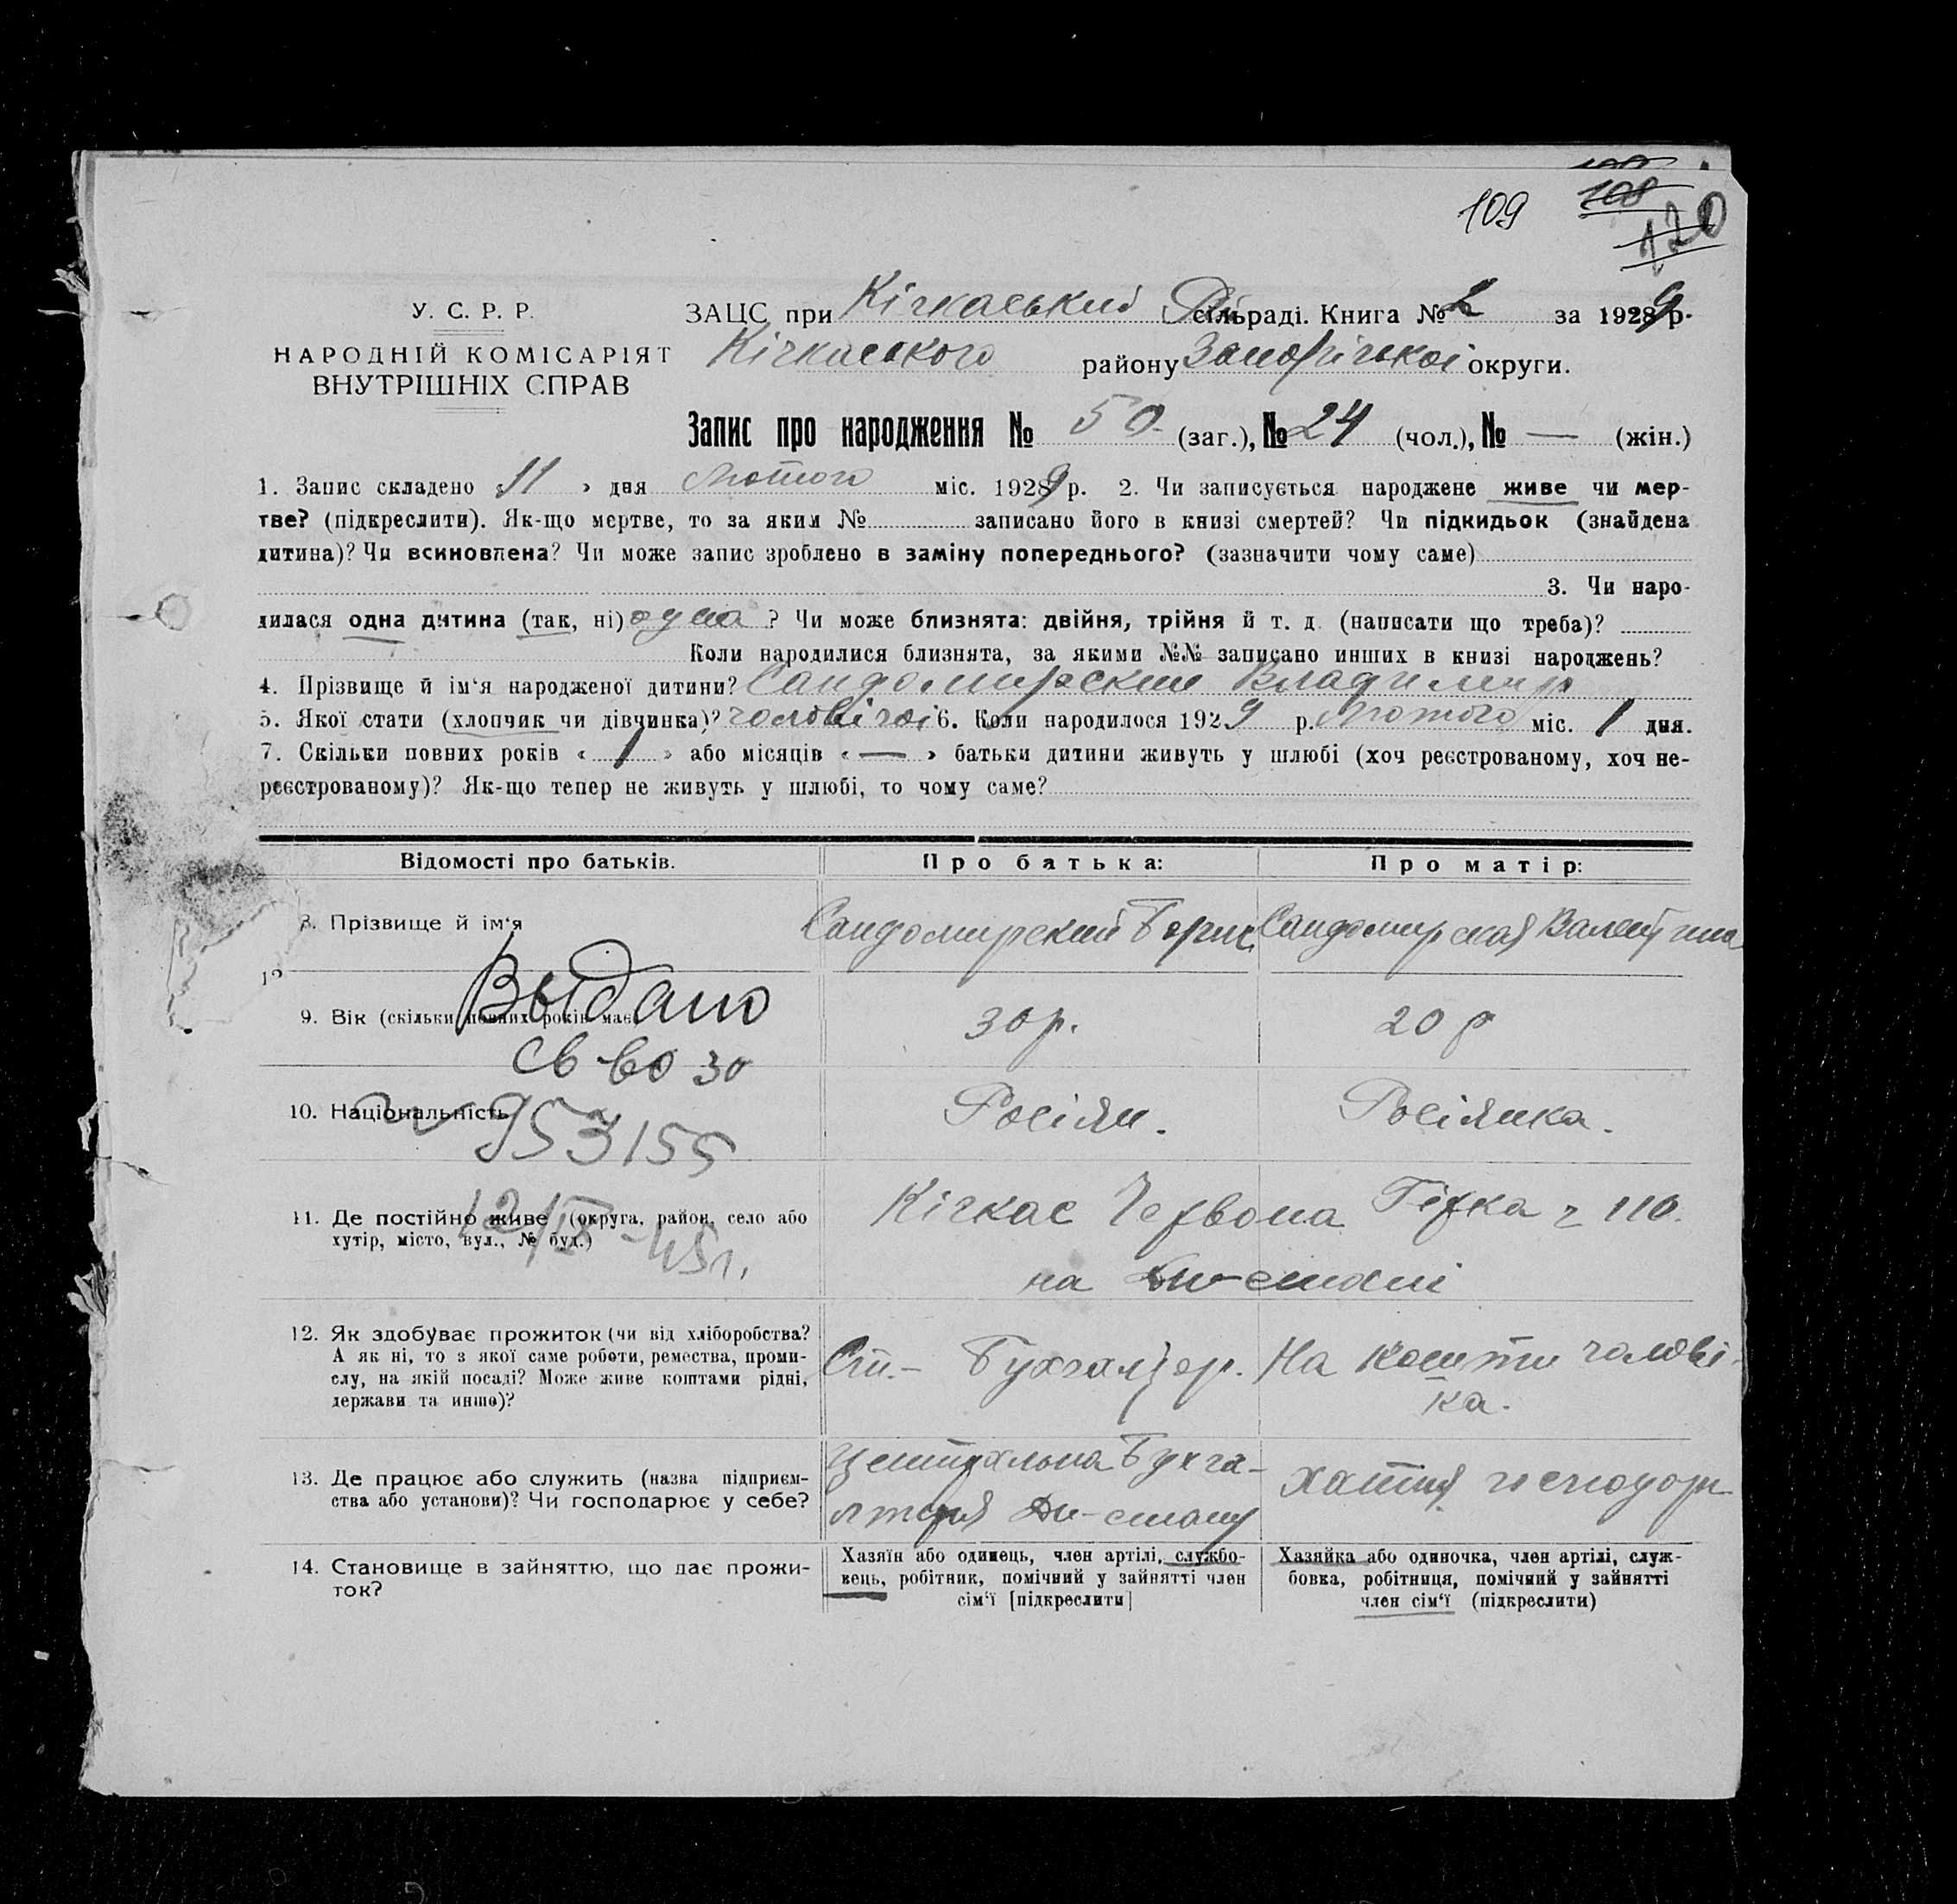 109 108 120
У. С. Р. Р.
НАРОДНІЙ КОМІСАРІЯТ
ВНУТРІШНІХ СПРАВ
ЗАЦС при Кічкаський сільраді. Книга № 2 за 1929 р.
Кічкаського району Запорізької округи.
Запис про народження № 50 (заг.), № 24 (чол.), № — (жін.)
1. Запис складено «11» дня лютого міс. 1929 р. 2. Чи записується народжене живе чи мер-
тве? (підкреслити). Як-що мертве, то за яким № записано його в книзі смертей? Чи підкидьок (знайдена
дитина)? Чи всиновлена? Чи може запис зроблено в заміну попереднього? (зазначити чому саме)
3. Чи наро-
дилася одна дитина (так, ні) одна ? Чи може близнята: двійня, трійня й т. д. (написати що треба)?
Коли народилися близнята, за якими №№ записано инших в книзі народжень?
4. Прізвище й ім'я народженої дитини? Сандомирский Владимир
5. Якої стати (хлопчик чи дівчинка)? чоловічої 6. Коли народилося 1929 р. лютого міс. 1 дня.
7. Скільки повних років « 1 » або місяців « — » батьки дитини живуть у шлюбі (хоч реєстрованому, хоч не-
реєстрованому)? Як-що тепер не живуть у шлюбі, то чому саме?
Відомості про батьків. Про батька: Про матір:
8. Прізвище й ім'я Сандомирский Борис Сандомирская Валентина
9. Вік (скільки повних років має) 30 р. 20 р
Выдано
св во 30
10. Національність Росіян. Росіянка.
№ 953155
11. Де постійно живе (округа, район, село або
хутір, місто, вул., № буд.)
Кічкас Червона Гірка ч 110.
на Дн-стані
12/IX-45 г.
12. Як здобуває прожиток (чи від хліборобства?
А як ні, то з якої саме роботи, ремества, проми-
слу, на якій посаді? Може живе коштами рідні,
держави та инше)?
Ст.- Бухгалтер.
На кошти чолові-
ка.
13. Де працює або служить (назва підприєм-
ства або установи)? Чи господарює у себе?
Центральна Бухга-
лтерія Дн-стану
хатня господорн
14. Становище в зайняттю, що дає прожи-
ток?
Хазяїн або одинець, член артілі, службо-
вець, робітник, помічний у зайнятті член
сім'ї [підкреслити]
Хазяйка або одиночка, член артілі, служ-
бовка, робітниця, помічний у зайнятті
член сім'ї (підкреслити)